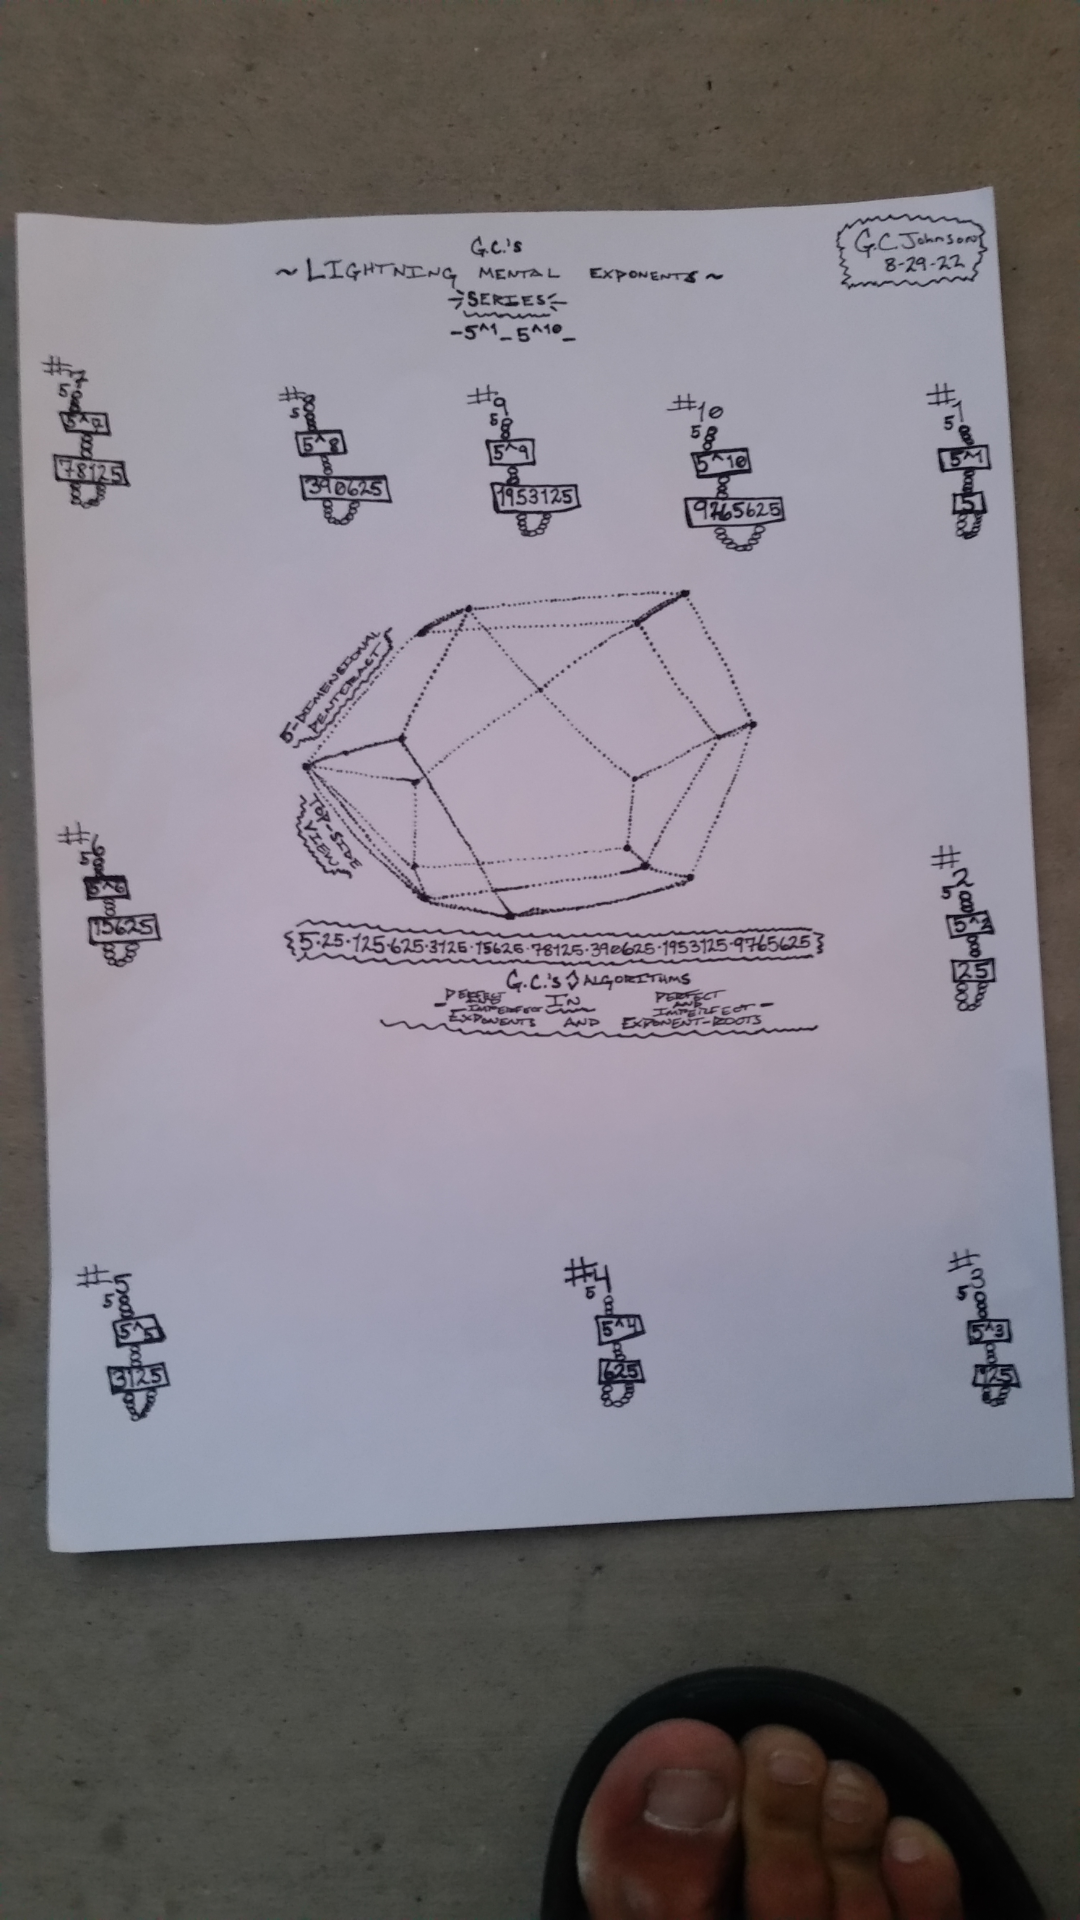 G.C.'s
~LIGHTNING MENTAL EXPONENTS~
SERIES
-5^1_5^10_
G.C. Johnson
8-29-22
#7
5
5^7
78125
#8
5
5^8
390625
#9
5
5^9
1953125
#10
5
5^10
9765625
#1
5
5^1
5
5-DIMENSIONAL
PENTERACT
TOP-SIDE
VIEW
#6
5
5^6
15625
#2
5
5^2
25
{5·25·125·625·3125·15625·78125·390625·1953125·9765625}
G.C.'s ALGORITHMS
IN
PERFECT
IMPERFECT
EXPONENTS AND
PERFECT
AND
IMPERFECT
EXPONENT-ROOTS
#5
5
5^5
3125
#4
5
5^4
625
#3
5
5^3
125